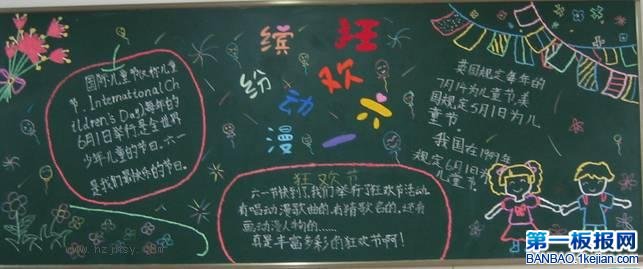 缤纷动漫
狂欢六一
国际儿童节又称儿童
节,(International Ch
ildren's Day)每年的
6月1日举行是全世界
少年儿童的节日。六一
是我们最快乐的节日。
狂欢节
六一节快到了,我们举行了狂欢节活动,
有唱动漫歌曲的,有猜歌名的,还有
画动漫人物的……
真是丰富多彩的狂欢节啊!
英国规定每年的
7月14为儿童节,美
国规定5月1日为儿
童节。
我国在1949年
规定6月1日为
儿童节
www.hzjmsy.com
第一板报网
BANBAO.1kejian.com